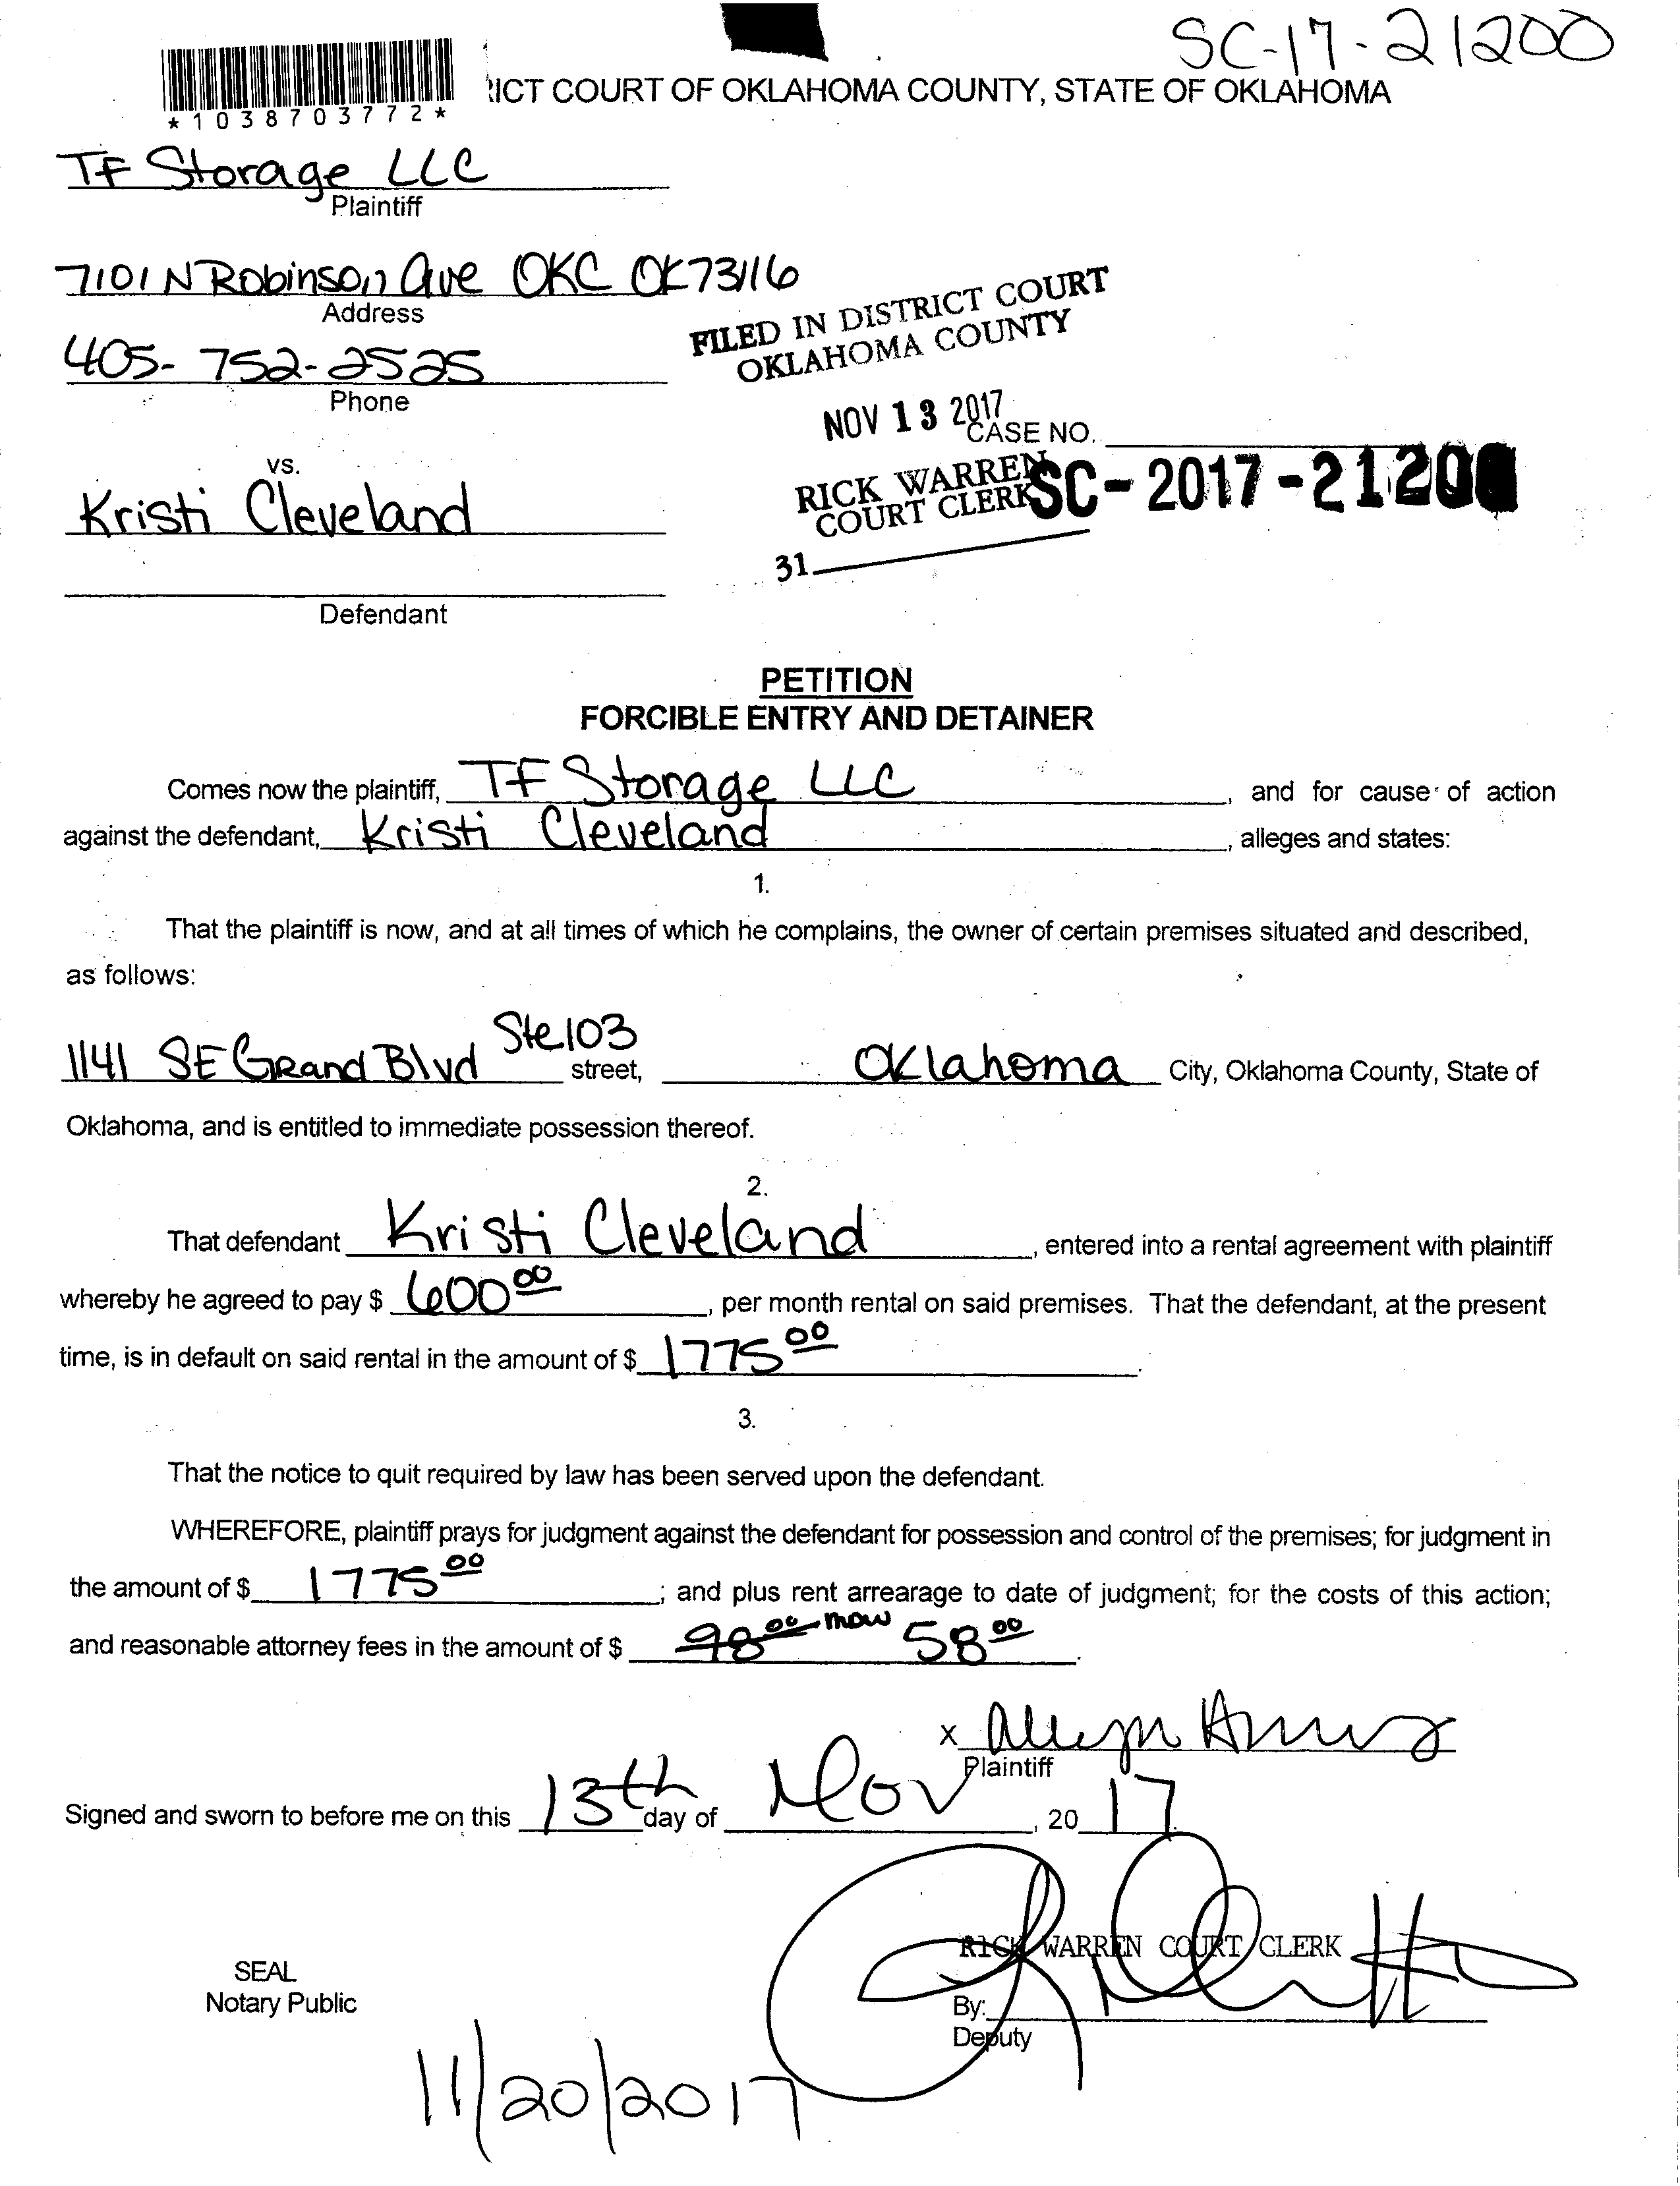 SC-17-21200
ICT COURT OF OKLAHOMA COUNTY, STATE OF OKLAHOMA
*1038703772*
TF Storage LLC
Plaintiff
7101 N Robinson Ave OKC OK 73116
Address
FILED IN DISTRICT COURT
OKLAHOMA COUNTY
405-752-2525
Phone
NOV 13 2017
CASE NO.
vs.
RICK WARREN
COURT CLERK
SC-2017-21200
Kristi Cleveland
31
Defendant
PETITION
FORCIBLE ENTRY AND DETAINER
Comes now the plaintiff, TF Storage LLC, and for cause of action
against the defendant, Kristi Cleveland, alleges and states:
1.
That the plaintiff is now, and at all times of which he complains, the owner of certain premises situated and described,
as follows:
1141 SE Grand Blvd Ste 103 street, Oklahoma City, Oklahoma County, State of
Oklahoma, and is entitled to immediate possession thereof.
2.
That defendant Kristi Cleveland, entered into a rental agreement with plaintiff
whereby he agreed to pay $ 600 00, per month rental on said premises. That the defendant, at the present
time, is in default on said rental in the amount of $ 1775 00.
3.
That the notice to quit required by law has been served upon the defendant.
WHEREFORE, plaintiff prays for judgment against the defendant for possession and control of the premises; for judgment in
the amount of $ 1775 00; and plus rent arrearage to date of judgment; for the costs of this action;
and reasonable attorney fees in the amount of $ 98 00 58 00.
x
Plaintiff
Signed and sworn to before me on this 13th day of Nov, 2017.
RICK WARREN COURT CLERK
SEAL
Notary Public
By:
Deputy
11/20/2017